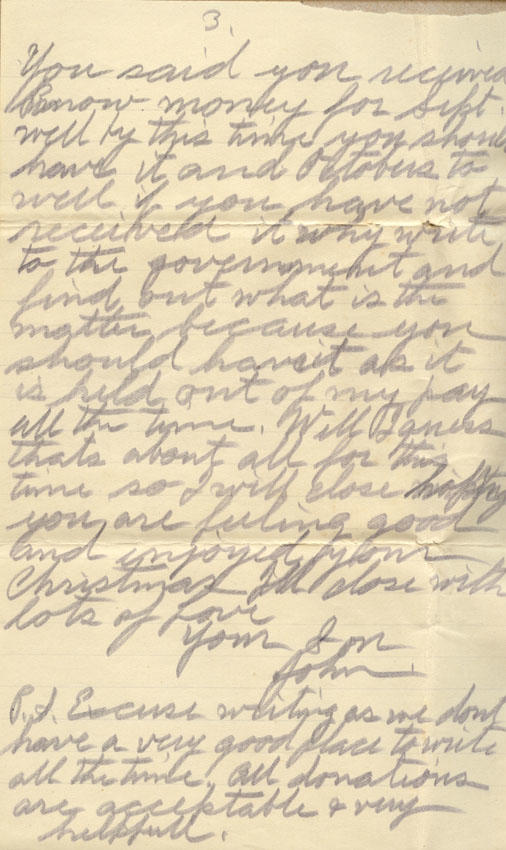 3.
You said you received
know money for Sept.
well by this time you should
have it and Octobers to
well if you have not
received it why write
to the government and
find out what is the
matter because you
should have it as it
is held out of my pay
all the time. Well I guess
thats about all for this
time so I will close hopeing
you are feeling good
and enjoyed your
Christmas Ill close with
lots of love
Your Son
John.
P.S. Excuse writing as we dont
have a very good place to write
all the time. All donations
are acceptable & very
helpfull.